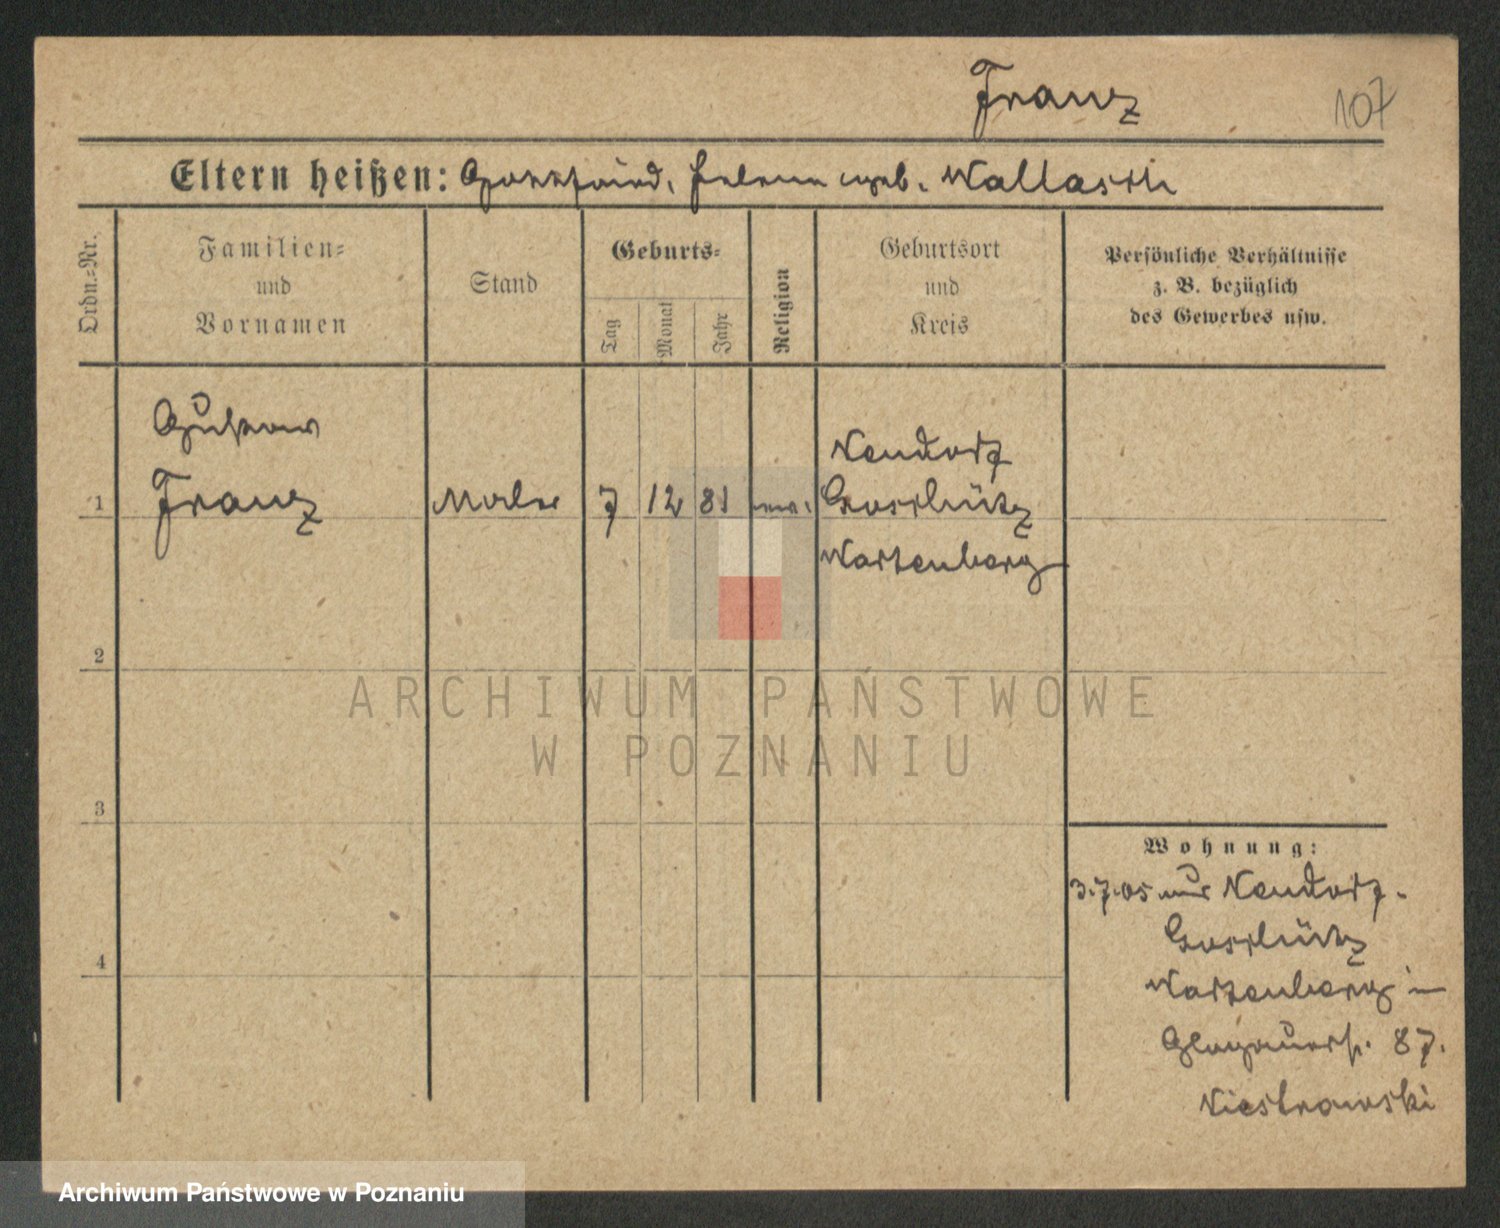 Franz
107
Eltern heißen: Gottfried, Helene geb. Wallasch
Ordn.=Nr.
Familien=
und
Vornamen
Stand
Geburts=
Tag
Monat
Jahr
Religion
Geburtsort
und
Kreis
Persönliche Verhältnisse
z. B. bezüglich
des Gewerbes usw.
Gustav
1 Franz Maler 7 12 81 ev.
Neudorf
Wartenberg
2
3
4
ARCHIWUM PAŃSTWOWE
W POZNANIU
Wohnung:
3.7.05 aus Neudorf-
Wartenberg in
Glogauerstr. 87.
Archiwum Państwowe w Poznaniu